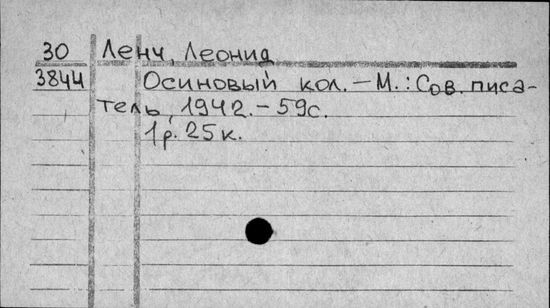 30 Ленч, Леонид
3844 Осиновый кол. – М.: Сов. писа-
тель, 1942. – 59с.
1р. 25к.